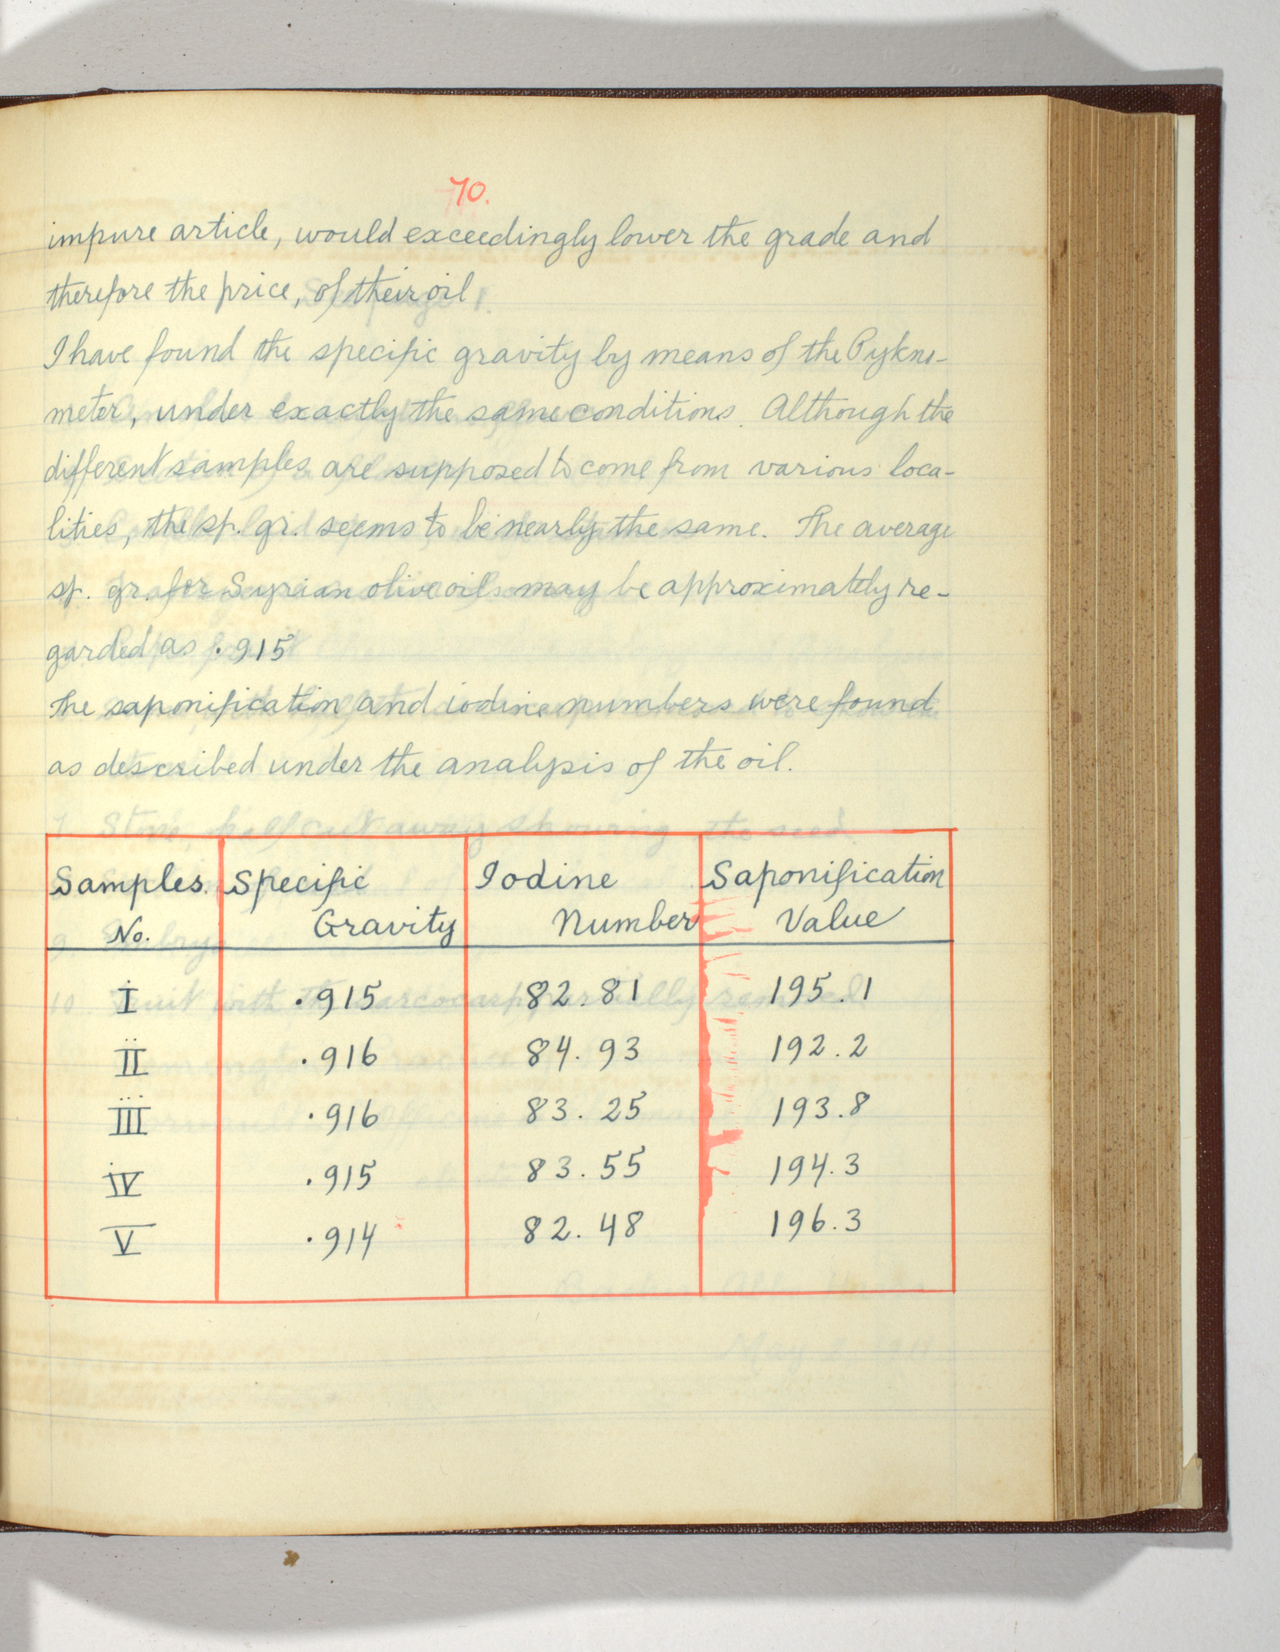 70.
impure article, would exceedingly lower the grade and
therefore the price, of their oil.
I have found the specific gravity by means of the Pykno-
meter, under exactly the same conditions. Although the
different samples are supposed to come from various loca-
lities, the sp. gr. seems to be nearly the same. The average
sp. gr. for Syrian olive oils may be approximately re-
garded as .915
The saponification and iodine numbers were found
as described under the analysis of the oil.
Samples. Specific Iodine Saponification
No. Gravity Number Value
I .915 82.81 195.1
II .916 84.93 192.2
III .916 83.25 193.8
IV .915 83.55 194.3
V .914 82.48 196.3